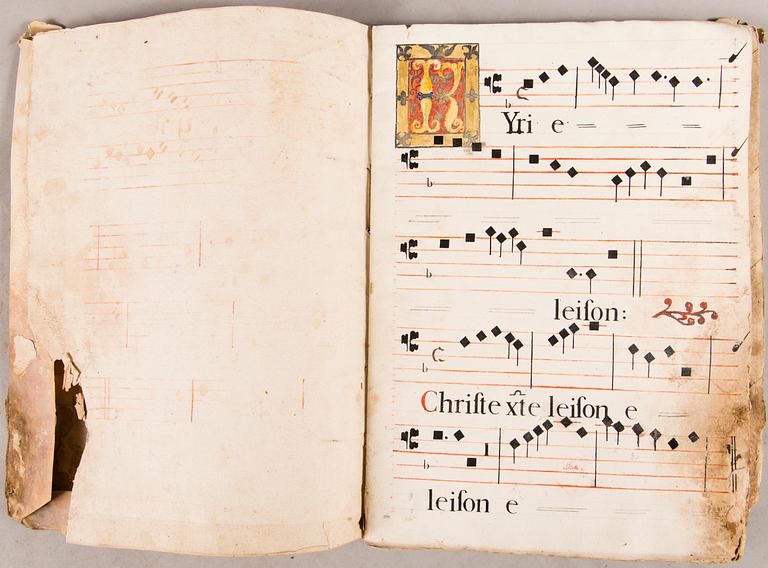 KYri e
leiſon:
Chriſte x̃te leiſon e
leiſon e